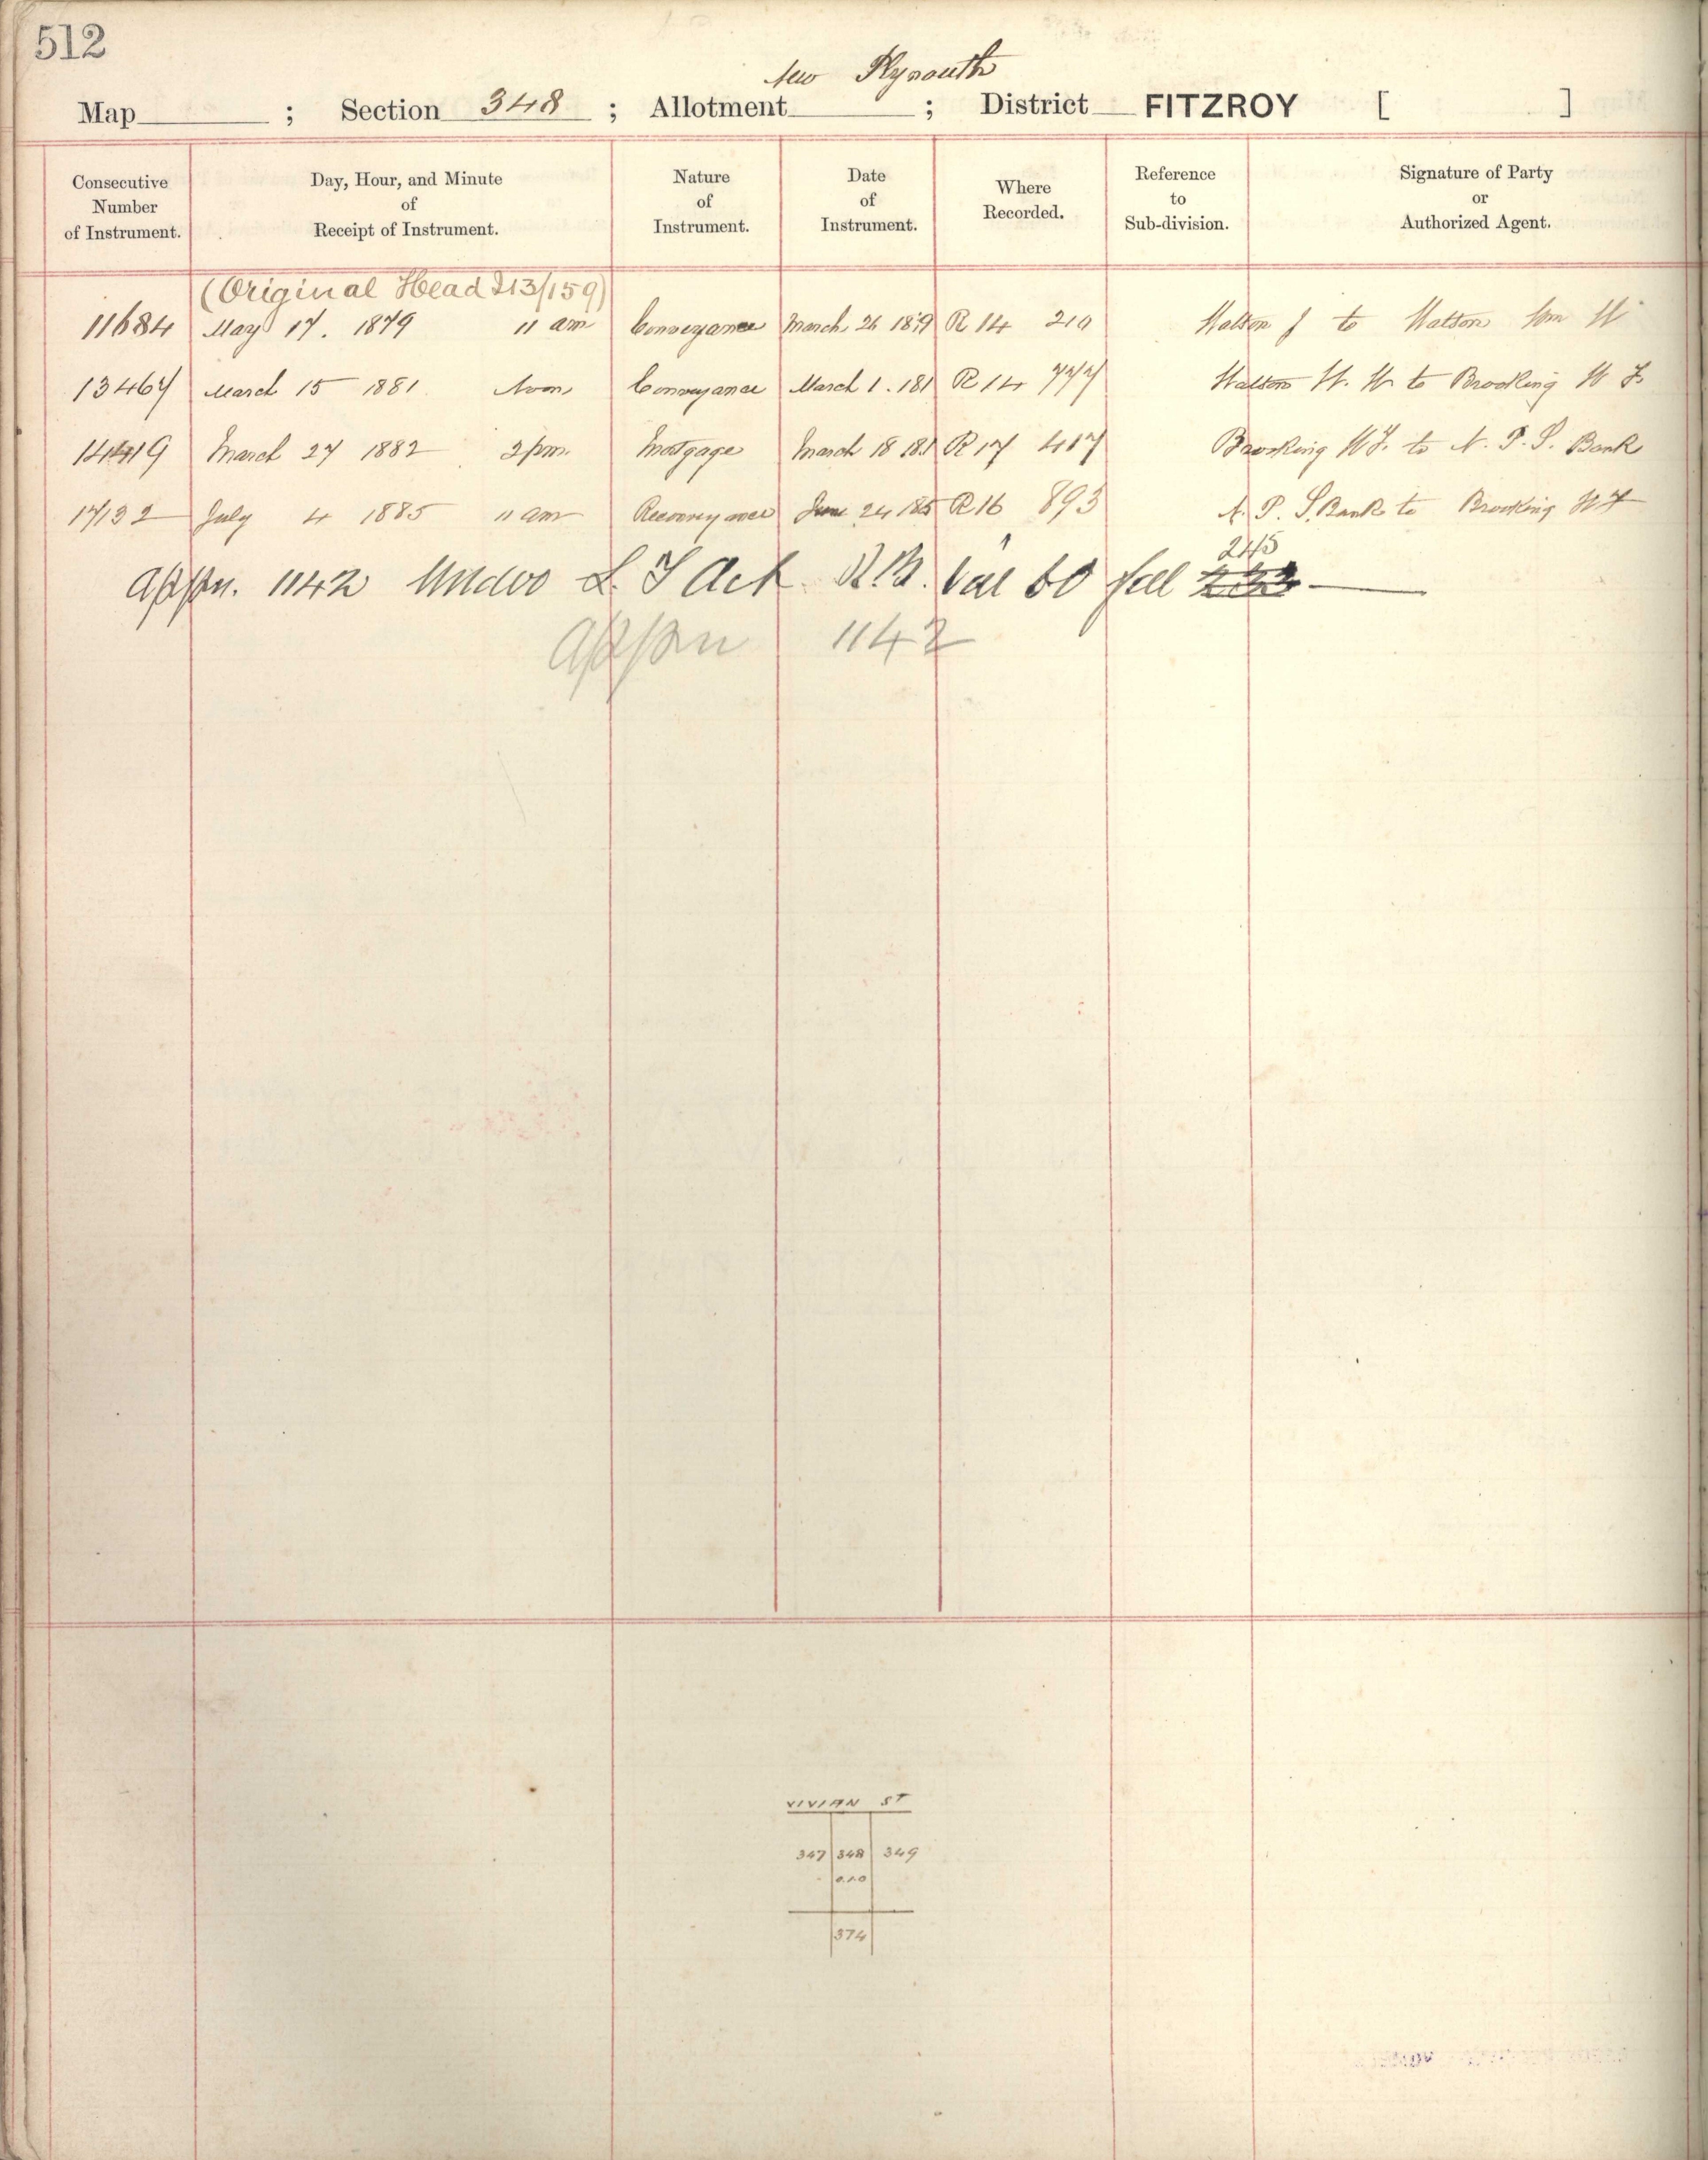 512
New Plymouth
Map ; Section 348 ; Allotment ; District FITZROY [ ]
Consecutive Number of Instrument.
Day, Hour, and Minute of Receipt of Instrument.
Nature of Instrument.
Date of Instrument.
Where Recorded.
Reference to Sub-division.
Signature of Party or Authorized Agent.
(Original Head 213/159)
11684 May 17. 1879 11 am Conveyance March 26 1879 R 14 210 Watson J to Watson Wm H
13467 March 15 1881 Noon Conveyance March 1. 181 R 14 777 Watson W. H. to Brooking W F
14419 March 27 1882 2 pm. Mortgage March 18 R 17 417 Brooking W F. to N. P. S. Bank
17132 July 4 1885 11 am Reconveyance June 24 185 R 16 893 N. P. S. Bank to Brooking W F
245
Appn. 1142 Under L. T Act R.B. Vol 60 fol
Appn 1142
VIVIAN ST
347 348 349
0.1.0
374